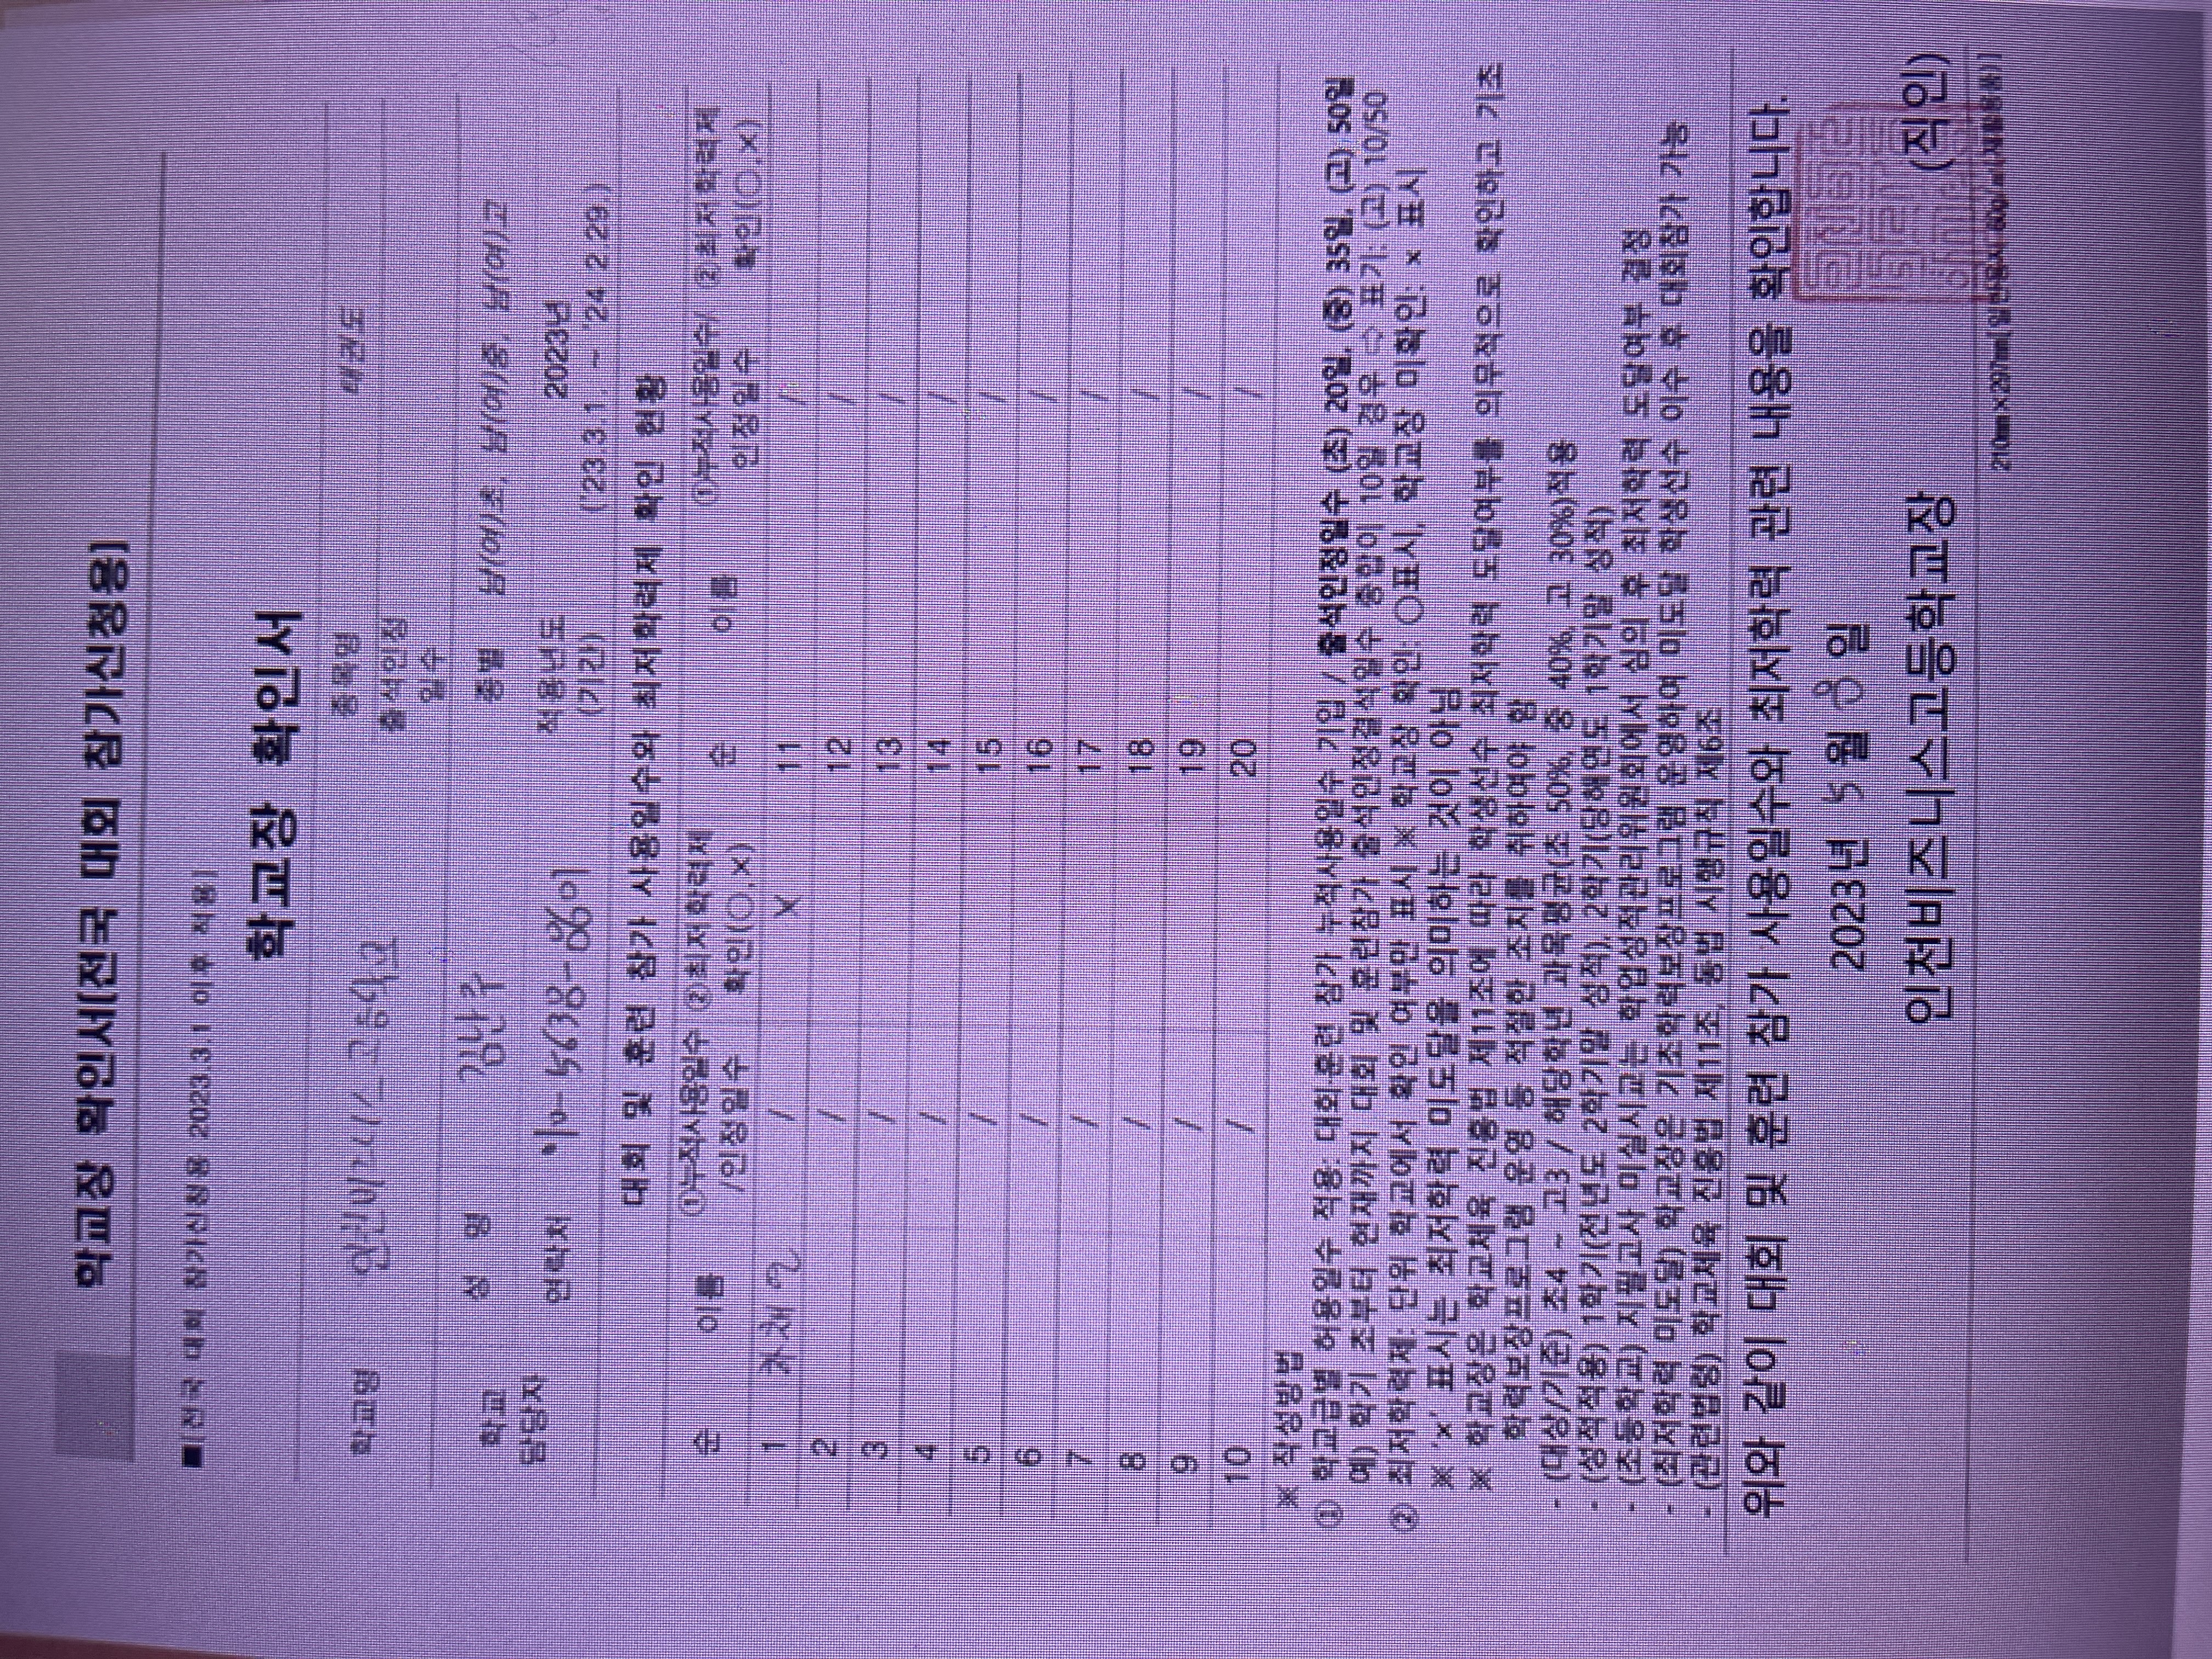 학교장 확인서[전국 대회 참가신청용]
■[전국 대회 참가신청용 2023.3.1 이후 적용]
학교장 확인서
학교명 인천비즈니스고등학교 종목명 태권도
출석인정
일수
학교 담당자 성 명 종별 남(여)초, 남(여)중, 남(여)고
연락처 적용년도 (기간) 2023년
('23.3.1. ~ '24.2.29.)
대회 및 훈련 참가 사용일수와 최저학력제 확인 현황
순 이름 ①누적사용일수/인정일수 ②최저학력제 확인(○,×) 순 이름 ①누적사용일수/인정일수 ②최저학력제 확인(○,×)
1 / X 11 /
2 / 12 /
3 / 13 /
4 / 14 /
5 / 15 /
6 / 16 /
7 / 17 /
8 / 18 /
9 / 19 /
10 / 20 /
※ 작성방법
① 학교급별 허용일수 적용: 대회훈련 참가 누적사용일수 기입 / 출석인정일수 (초) 20일, (중) 35일, (고) 50일
예) 학기 초부터 현재까지 대회 및 훈련참가 출석인정결석일수 총합이 10일 경우 ⇨ 표기: (고) 10/50
② 최저학력제: 단위 학교에서 확인 여부만 표시 ※ 학교장 확인: ○표시, 학교장 미확인: × 표시
※ '×' 표시는 최저학력 미도달을 의미하는 것이 아님
※ 학교장은 학교체육 진흥법 제11조에 따라 학생선수 최저학력 도달여부를 의무적으로 확인하고 기초
학력보장프로그램 운영 등 적절한 조치를 취하여야 함
- (대상/기준) 초4 ~ 고3 / 해당학년 과목평균(초 50%, 중 40%, 고 30%)적용
- (성적적용) 1학기(전년도 2학기말 성적), 2학기(당해연도 1학기말 성적)
- (초등학교) 지필고사 미실시교는 학업성적관리위원회에서 심의 후 최저학력 도달여부 결정
- (최저학력 미도달) 학교장은 기초학력보장프로그램 운영하여 미도달 학생선수 이수 후 대회참가 가능
- (관련법령) 학교체육 진흥법 제11조, 동법 시행규칙 제6조
위와 같이 대회 및 훈련 참가 사용일수와 최저학력 관련 내용을 확인합니다.
2023년 5월 8일
인천비즈니스고등학교장 (직인)